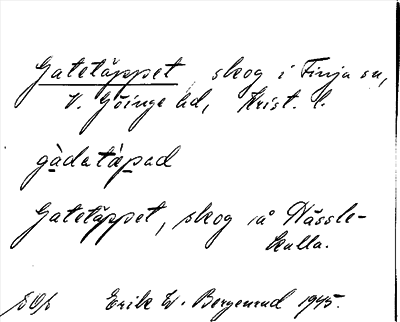 Gatetäppet skog i Finja sn,
V. Göinge hd, Krist. l.
gàdatàpad
Gatetäppet, skog på Hässle-
kulla.
Erik W. Bergenrud 1945.